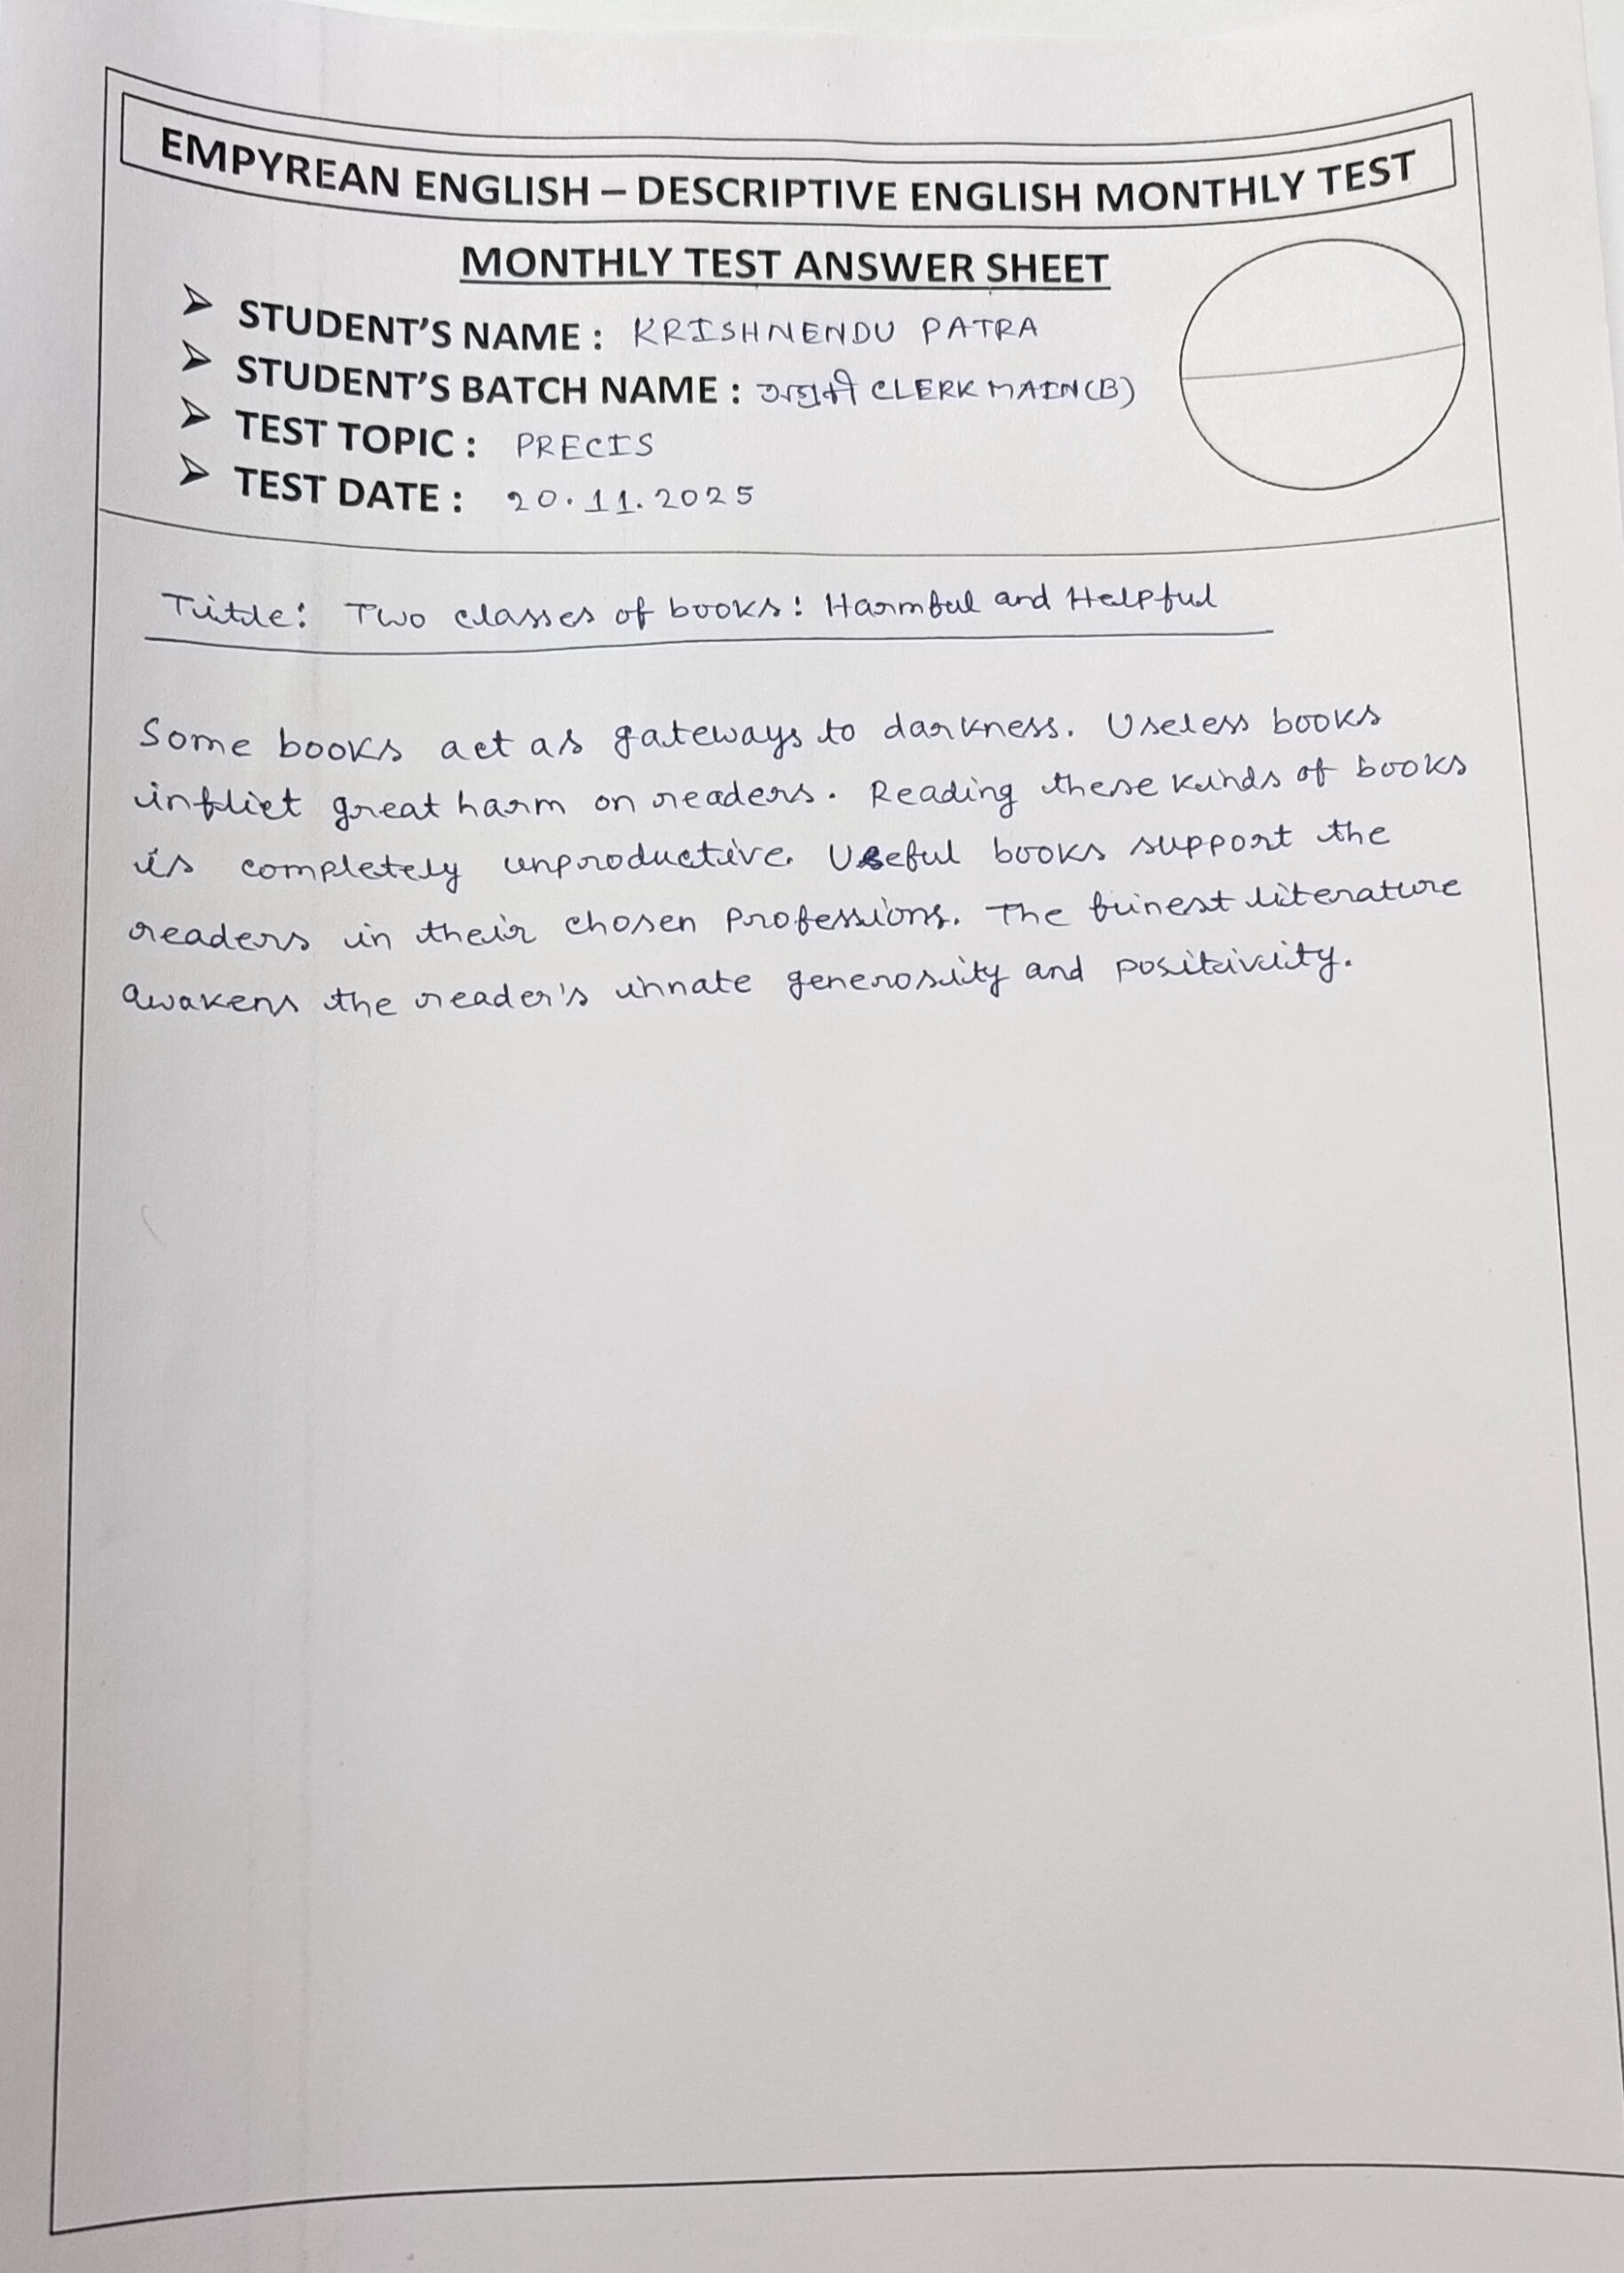 EMPYREAN ENGLISH – DESCRIPTIVE ENGLISH MONTHLY TEST
MONTHLY TEST ANSWER SHEET
➢ STUDENT'S NAME : KRISHNENDU PATRA
➢ STUDENT'S BATCH NAME : CLERK MAIN(B)
➢ TEST TOPIC : PRECIS
➢ TEST DATE : 20.11.2025
Title: Two classes of books: Harmful and Helpful
Some books act as gateways to darkness. Useless books
inflict great harm on readers. Reading these kinds of books
is completely unproductive. Useful books support the
readers in their chosen professions. The finest literature
awakens the reader's innate generosity and positivity.